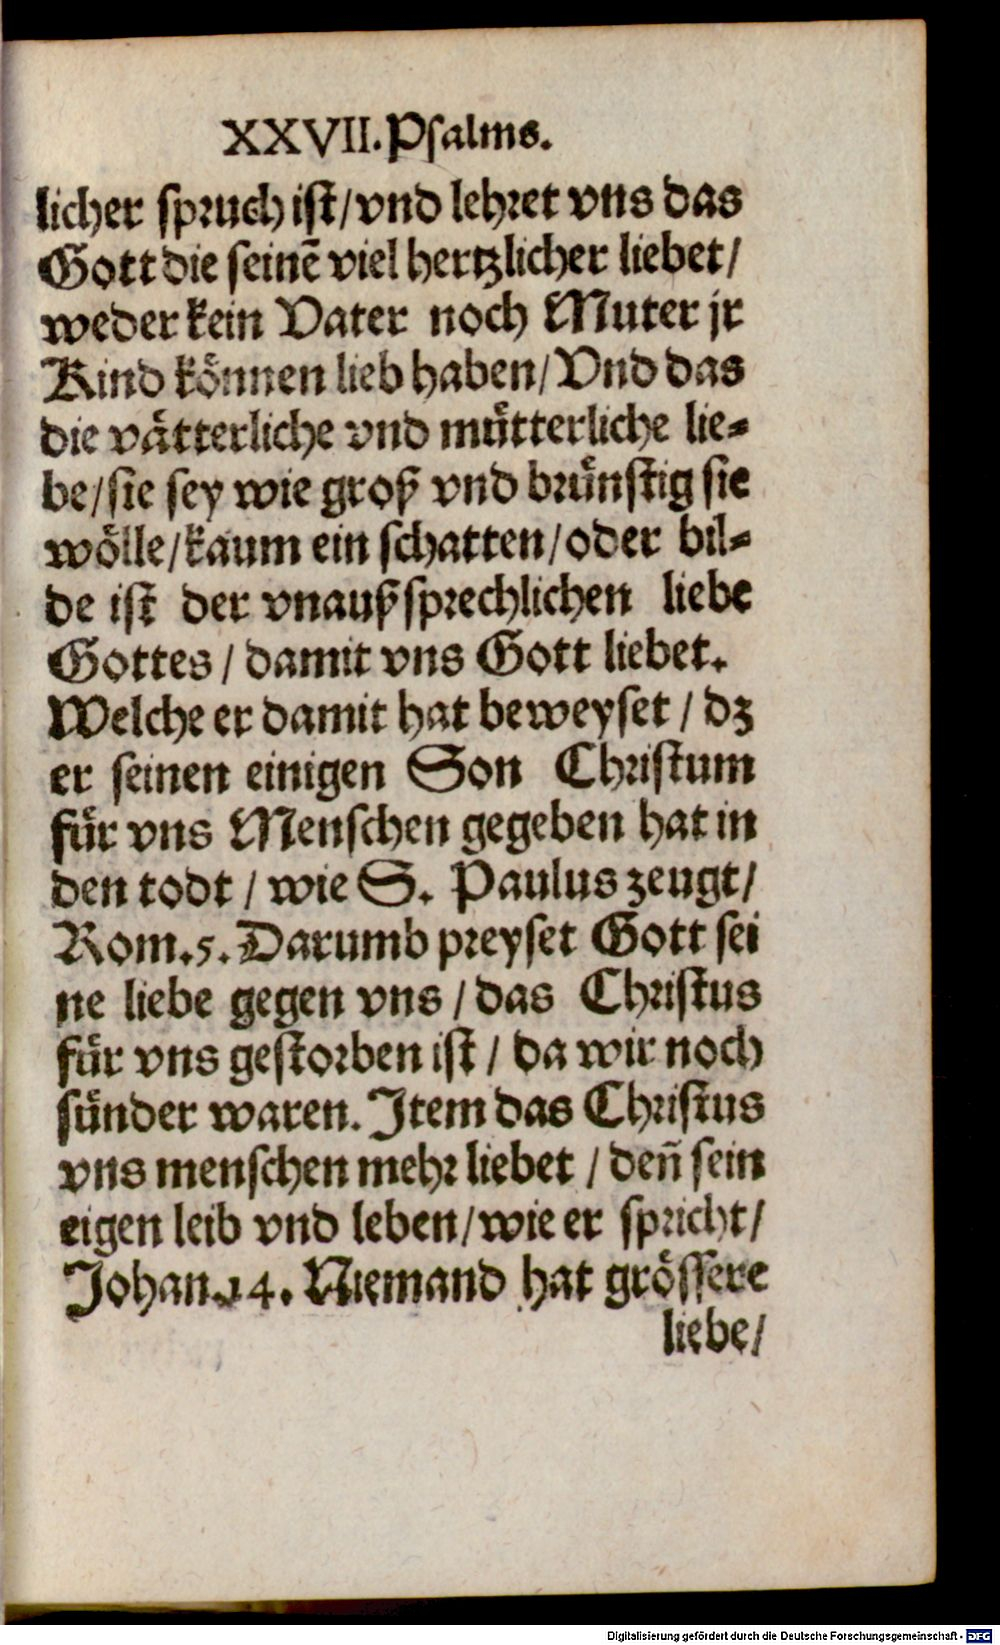 XXVII. Psalms.
licher spruch ist/ vnd lehret vns das
Gott die seinē viel hertzlicher liebet/
weder kein Vater noch Muter jr
Kind können lieb haben/ Vnd das
die vätterliche vnd mütterliche lie-
be/ sie sey wie groß vnd brünstig sie
wölle/ kaum ein schatten/ oder bil-
de ist der vnaußsprechlichen liebe
Gottes/ damit vns Gott liebet.
Welche er damit hat beweyset/ dz
er seinen einigen Son Christum
für vns Menschen gegeben hat in
den todt/ wie S. Paulus zeugt/
Rom. 5. Darumb preyset Gott sei
ne liebe gegen vns/ das Christus
für vns gestorben ist/ da wir noch
sünder waren. Item das Christus
vns menschen mehr liebet/ deñ sein
eigen leib vnd leben/ wie er spricht/
Johan. 14. Niemand hat grössere
liebe/
Digitalisierung gefördert durch die Deutsche Forschungsgemeinschaft - DFG